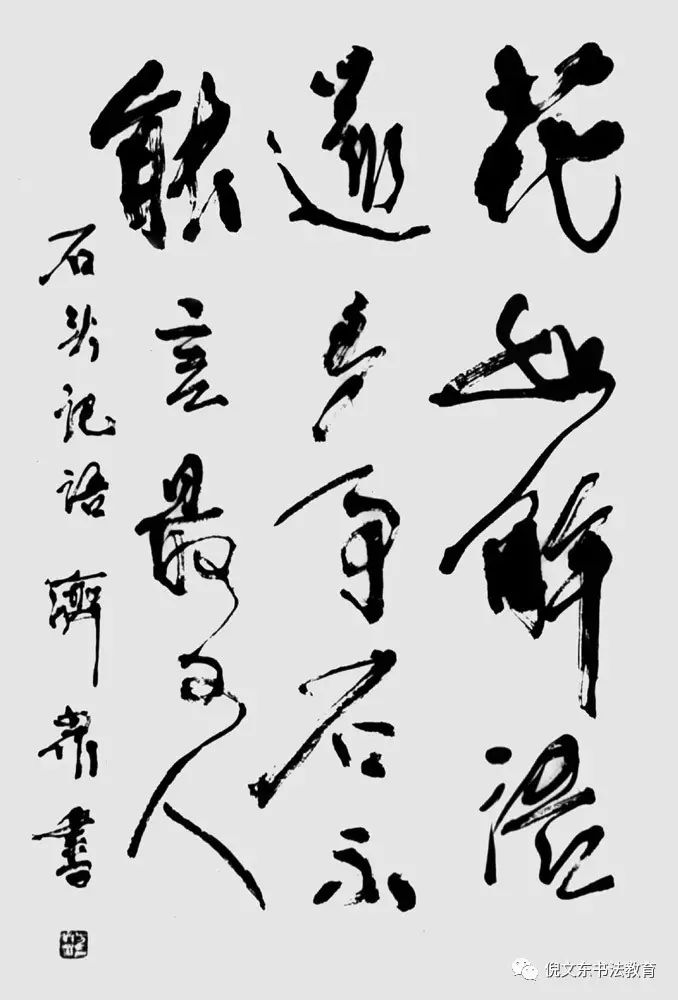 花如解語
還多事石不
能言最可人
石頭記語 濟 書
倪文东书法教育